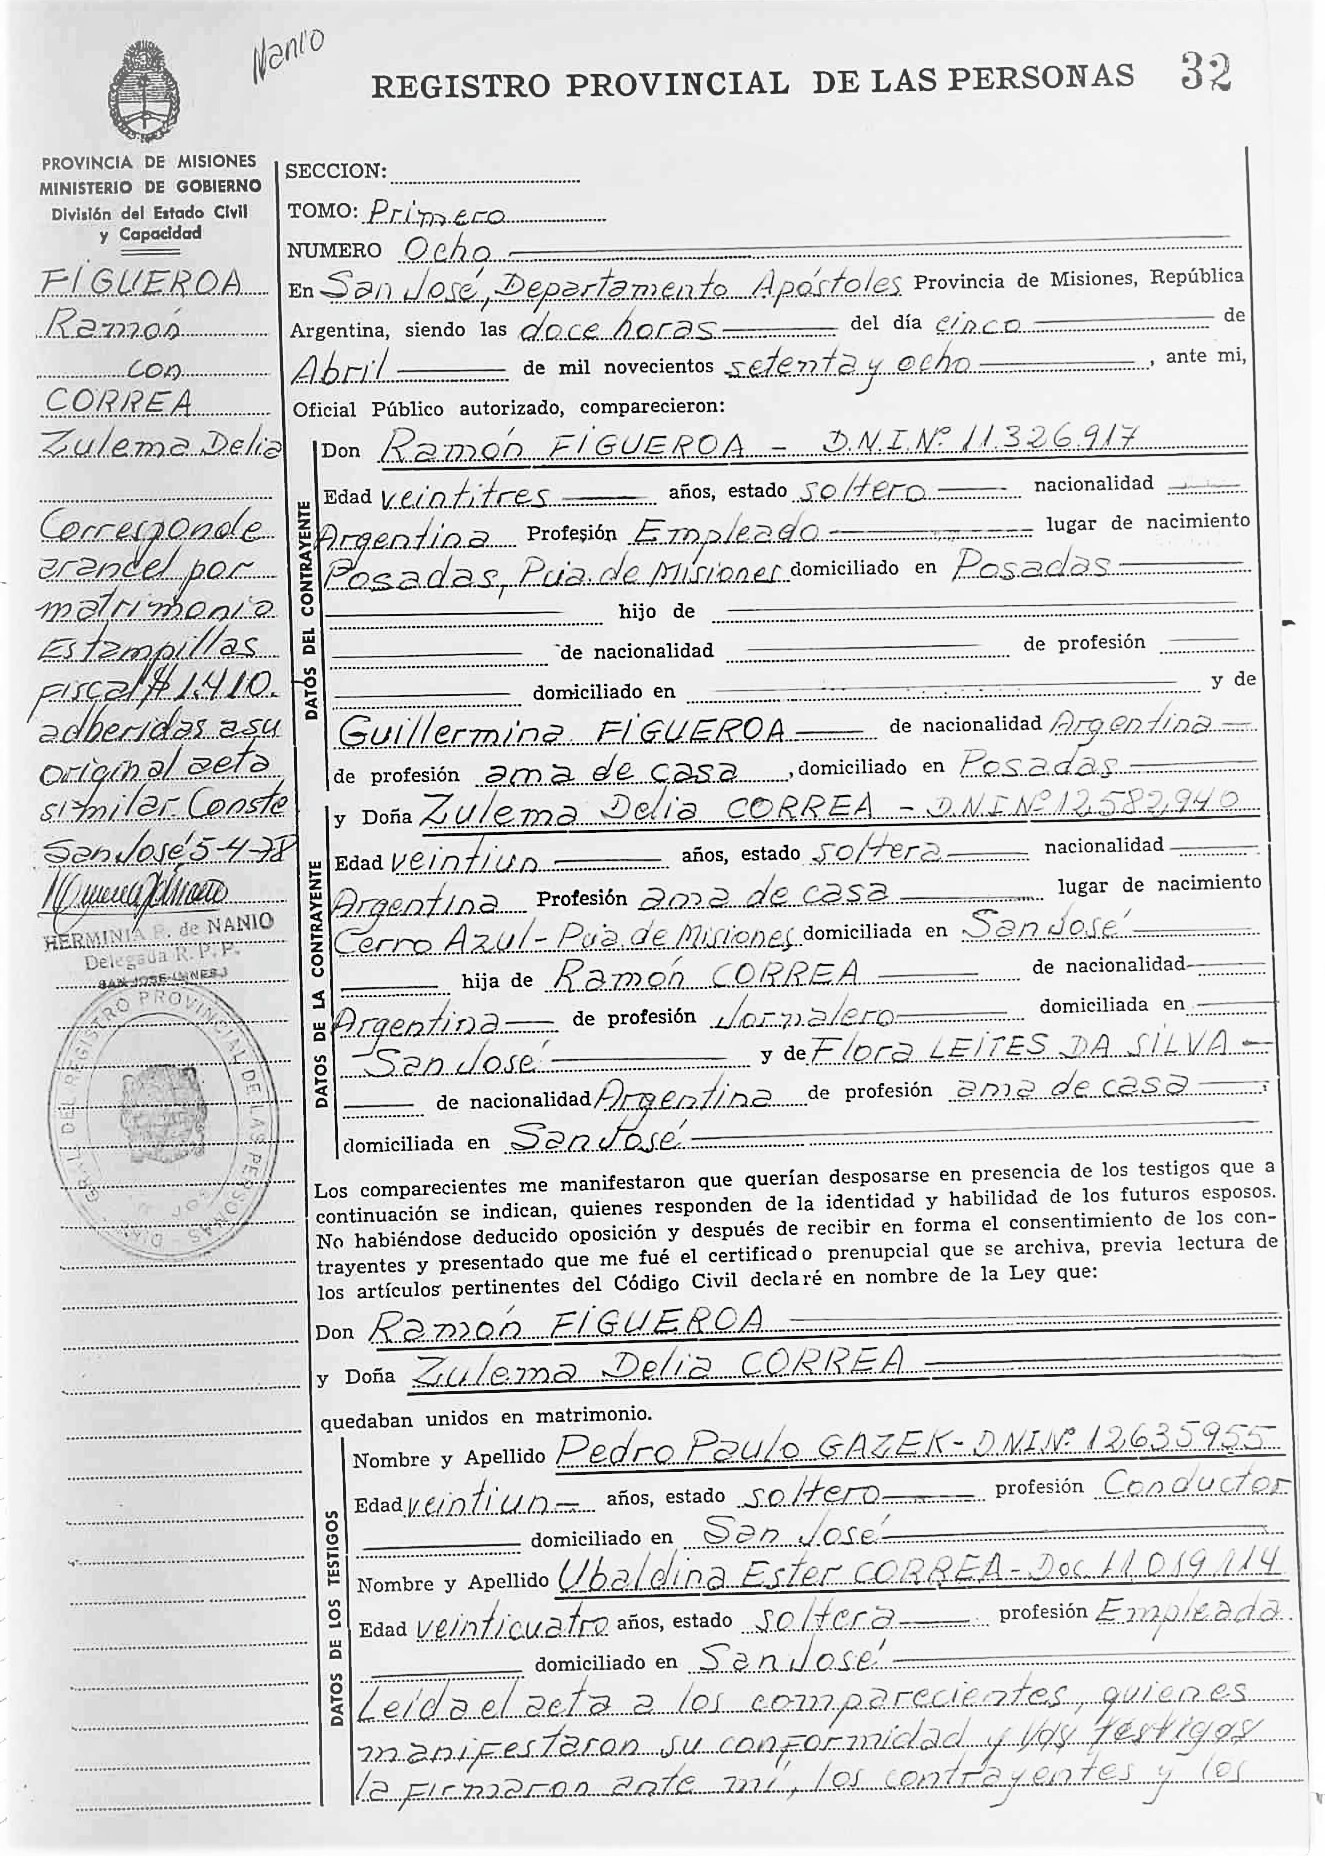 Nanio
REGISTRO PROVINCIAL DE LAS PERSONAS 32
PROVINCIA DE MISIONES
MINISTERIO DE GOBIERNO
División del Estado Civil
y Capacidad
FIGUEROA
Ramón
con
CORREA
Zulema Delia
Corresponde
arancel por
matrimonio
Estampillas
fiscal $ 1.410.
adheridas a su
original acta
similar. Conste
San José 5-4-78
HERMINIA R. de NANIO
Delegada R. P. P.
SAN JOSE (MNES.)
GRAL. DEL REGISTRO PROVINCIAL DE LAS PERSONAS
SECCION:
TOMO: Primero
NUMERO Ocho
En San José, Departamento Apóstoles Provincia de Misiones, República
Argentina, siendo las doce horas del día cinco de
Abril de mil novecientos setenta y ocho, ante mi,
Oficial Público autorizado, comparecieron:
DATOS DEL CONTRAYENTE
Don Ramón FIGUEROA - D.N.I.Nº 11.326.917
Edad veintitres años, estado soltero nacionalidad
Argentina Profesión Empleado lugar de nacimiento
Posadas, Pcia. de Misiones domiciliado en Posadas
hijo de
de nacionalidad de profesión
domiciliado en y de
Guillermina FIGUEROA de nacionalidad Argentina
de profesión ama de casa, domiciliado en Posadas
DATOS DE LA CONTRAYENTE
y Doña Zulema Delia CORREA - D.N.I.Nº 12.582.940
Edad veintiun años, estado soltera nacionalidad
Argentina Profesión ama de casa lugar de nacimiento
Cerro Azul - Pcia. de Misiones domiciliada en San José
hija de Ramón CORREA de nacionalidad
Argentina de profesión Jornalero domiciliada en
San José y de Flora LEITES DA SILVA
de nacionalidad Argentina de profesión ama de casa
domiciliada en San José
Los comparecientes me manifestaron que querían desposarse en presencia de los testigos que a
continuación se indican, quienes responden de la identidad y habilidad de los futuros esposos.
No habiéndose deducido oposición y después de recibir en forma el consentimiento de los con-
trayentes y presentado que me fué el certificado prenupcial que se archiva, previa lectura de
los artículos pertinentes del Código Civil declaré en nombre de la Ley que:
Don Ramón FIGUEROA
y Doña Zulema Delia CORREA
quedaban unidos en matrimonio.
DATOS DE LOS TESTIGOS
Nombre y Apellido Pedro Paulo GAZEK - D.N.I.Nº 12635955
Edad veintiun años, estado soltero profesión Conductor
domiciliado en San José
Nombre y Apellido Ubaldina Ester CORREA - Doc. 11.019.114
Edad veinticuatro años, estado soltera profesión Empleada
domiciliado en San José
Leída el acta a los comparecientes, quienes
manifestaron su conformidad y testigos
la firmaron ante mí, los contrayentes y los